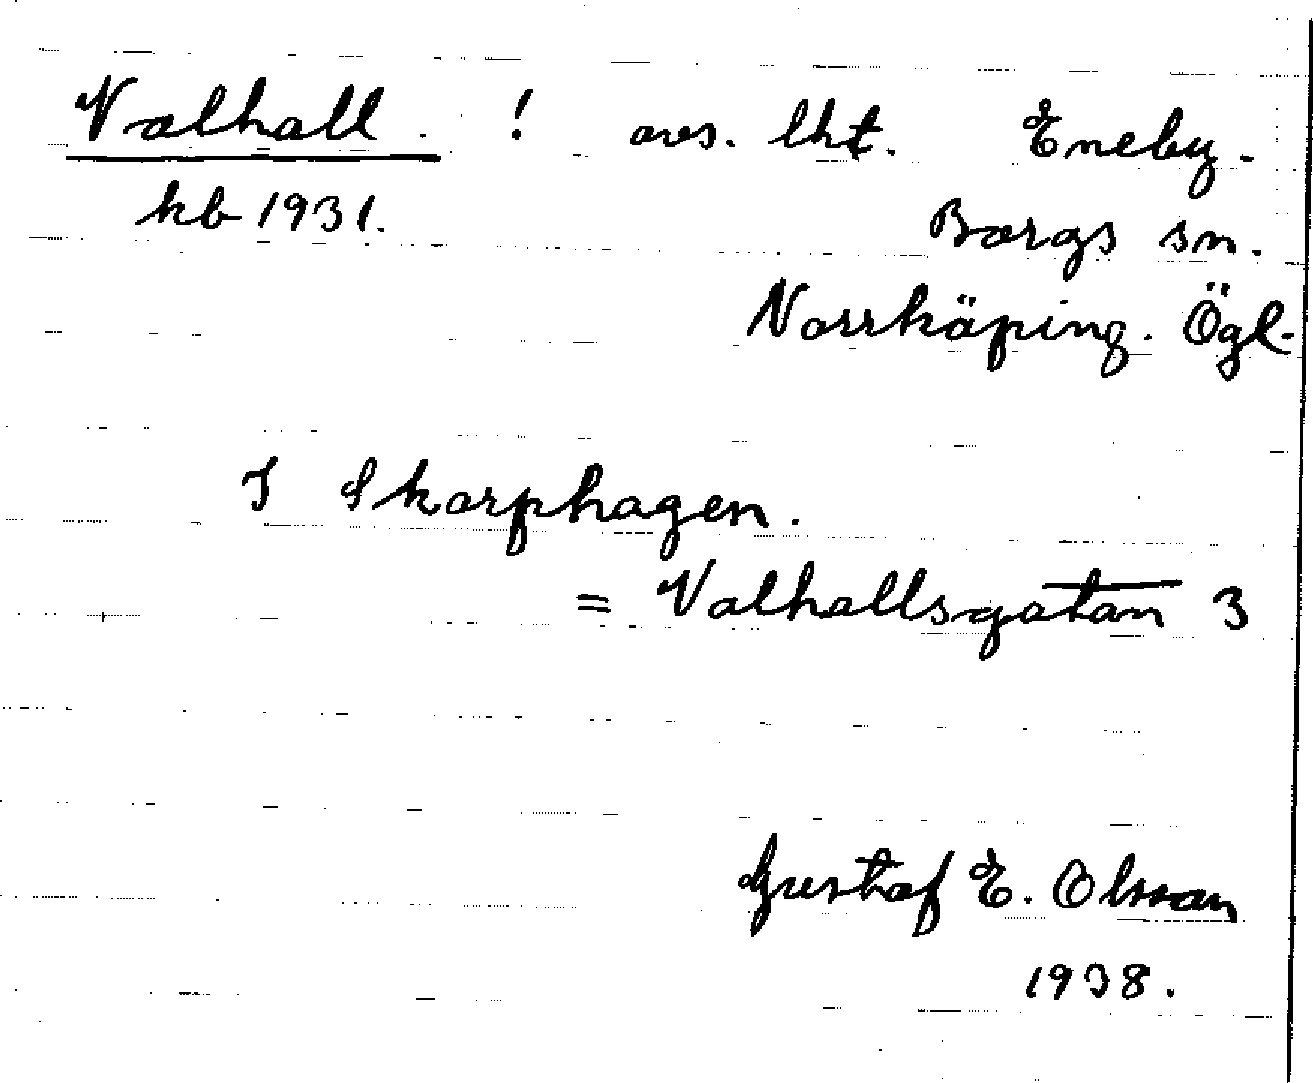 Valhall. ! avs. lht. Eneby.
kb 1931. Borgs sn.
Norrköping. Ögl.
I Skarphagen.
= Valhallsgatan 3
Gustaf E. Olsson
1938.